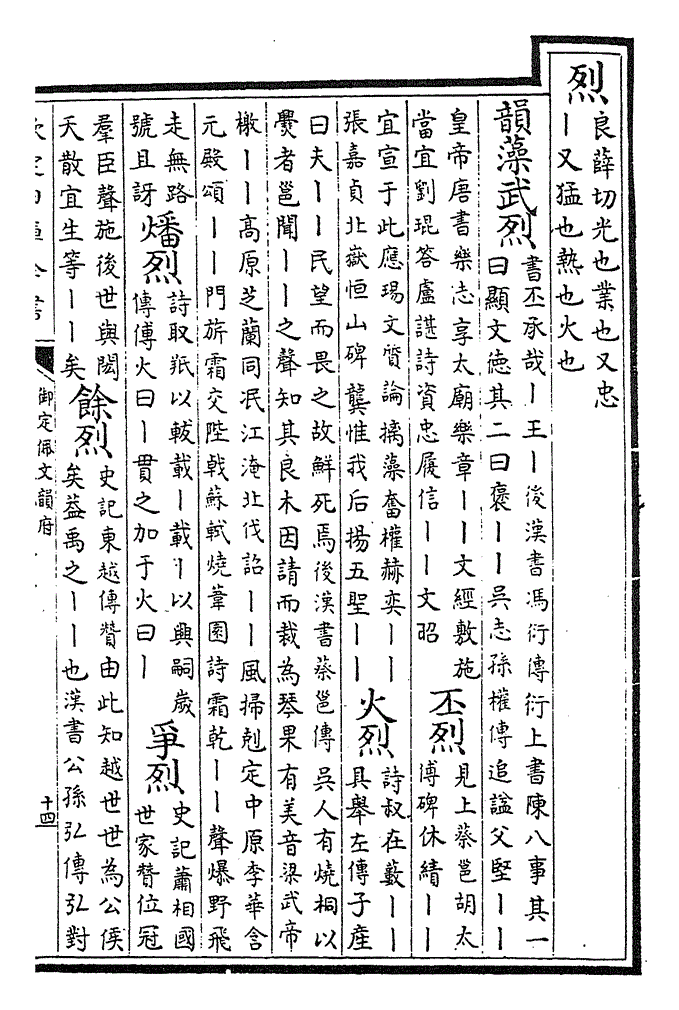 烈良薛切光也業也又忠
｜又猛也熱也火也
韻藻武烈書丕承哉｜王｜後漢書馮衍傳衍上書陳八事其一
曰顯文德其二曰褒｜｜吳志孫權傳追諡父堅｜｜
皇帝唐書樂志享太廟樂章｜｜文經敷施
當宜劉琨答盧諶詩資忠履信｜｜文昭
丕烈見上蔡邕胡太
傅碑休績｜｜
宜宣于此應瑒文質論摛藻奮權赫奕｜｜
張嘉貞北嶽恒山碑龔惟我后揚五聖｜｜
火烈詩叔在藪｜｜
具舉左傳子產
曰夫｜｜民望而畏之故鮮死焉後漢書蔡邕傳吳人有燒桐以
爨者邕聞｜｜之聲知其良木因請而裁為琴果有美音梁武帝
檄｜｜高原芝蘭同泯江淹北伐詔｜｜風掃剋定中原李華含
元殿頌｜｜門旂霜交陛戟蘇軾燒葦園詩霜乾｜｜聲爆野飛
走無路
號且訝
燔烈詩取羝以軷載｜載｜以興嗣歲
傳傅火曰｜貫之加于火曰｜
爭烈史記蕭相國
世家贊位冠
羣臣聲施後世與閎
夭散宜生等｜｜矣
餘烈史記東越傳贊由此知越世世為公侯
矣蓋禹之｜｜也漢書公孫弘傳弘對
御定佩文韻府
十四